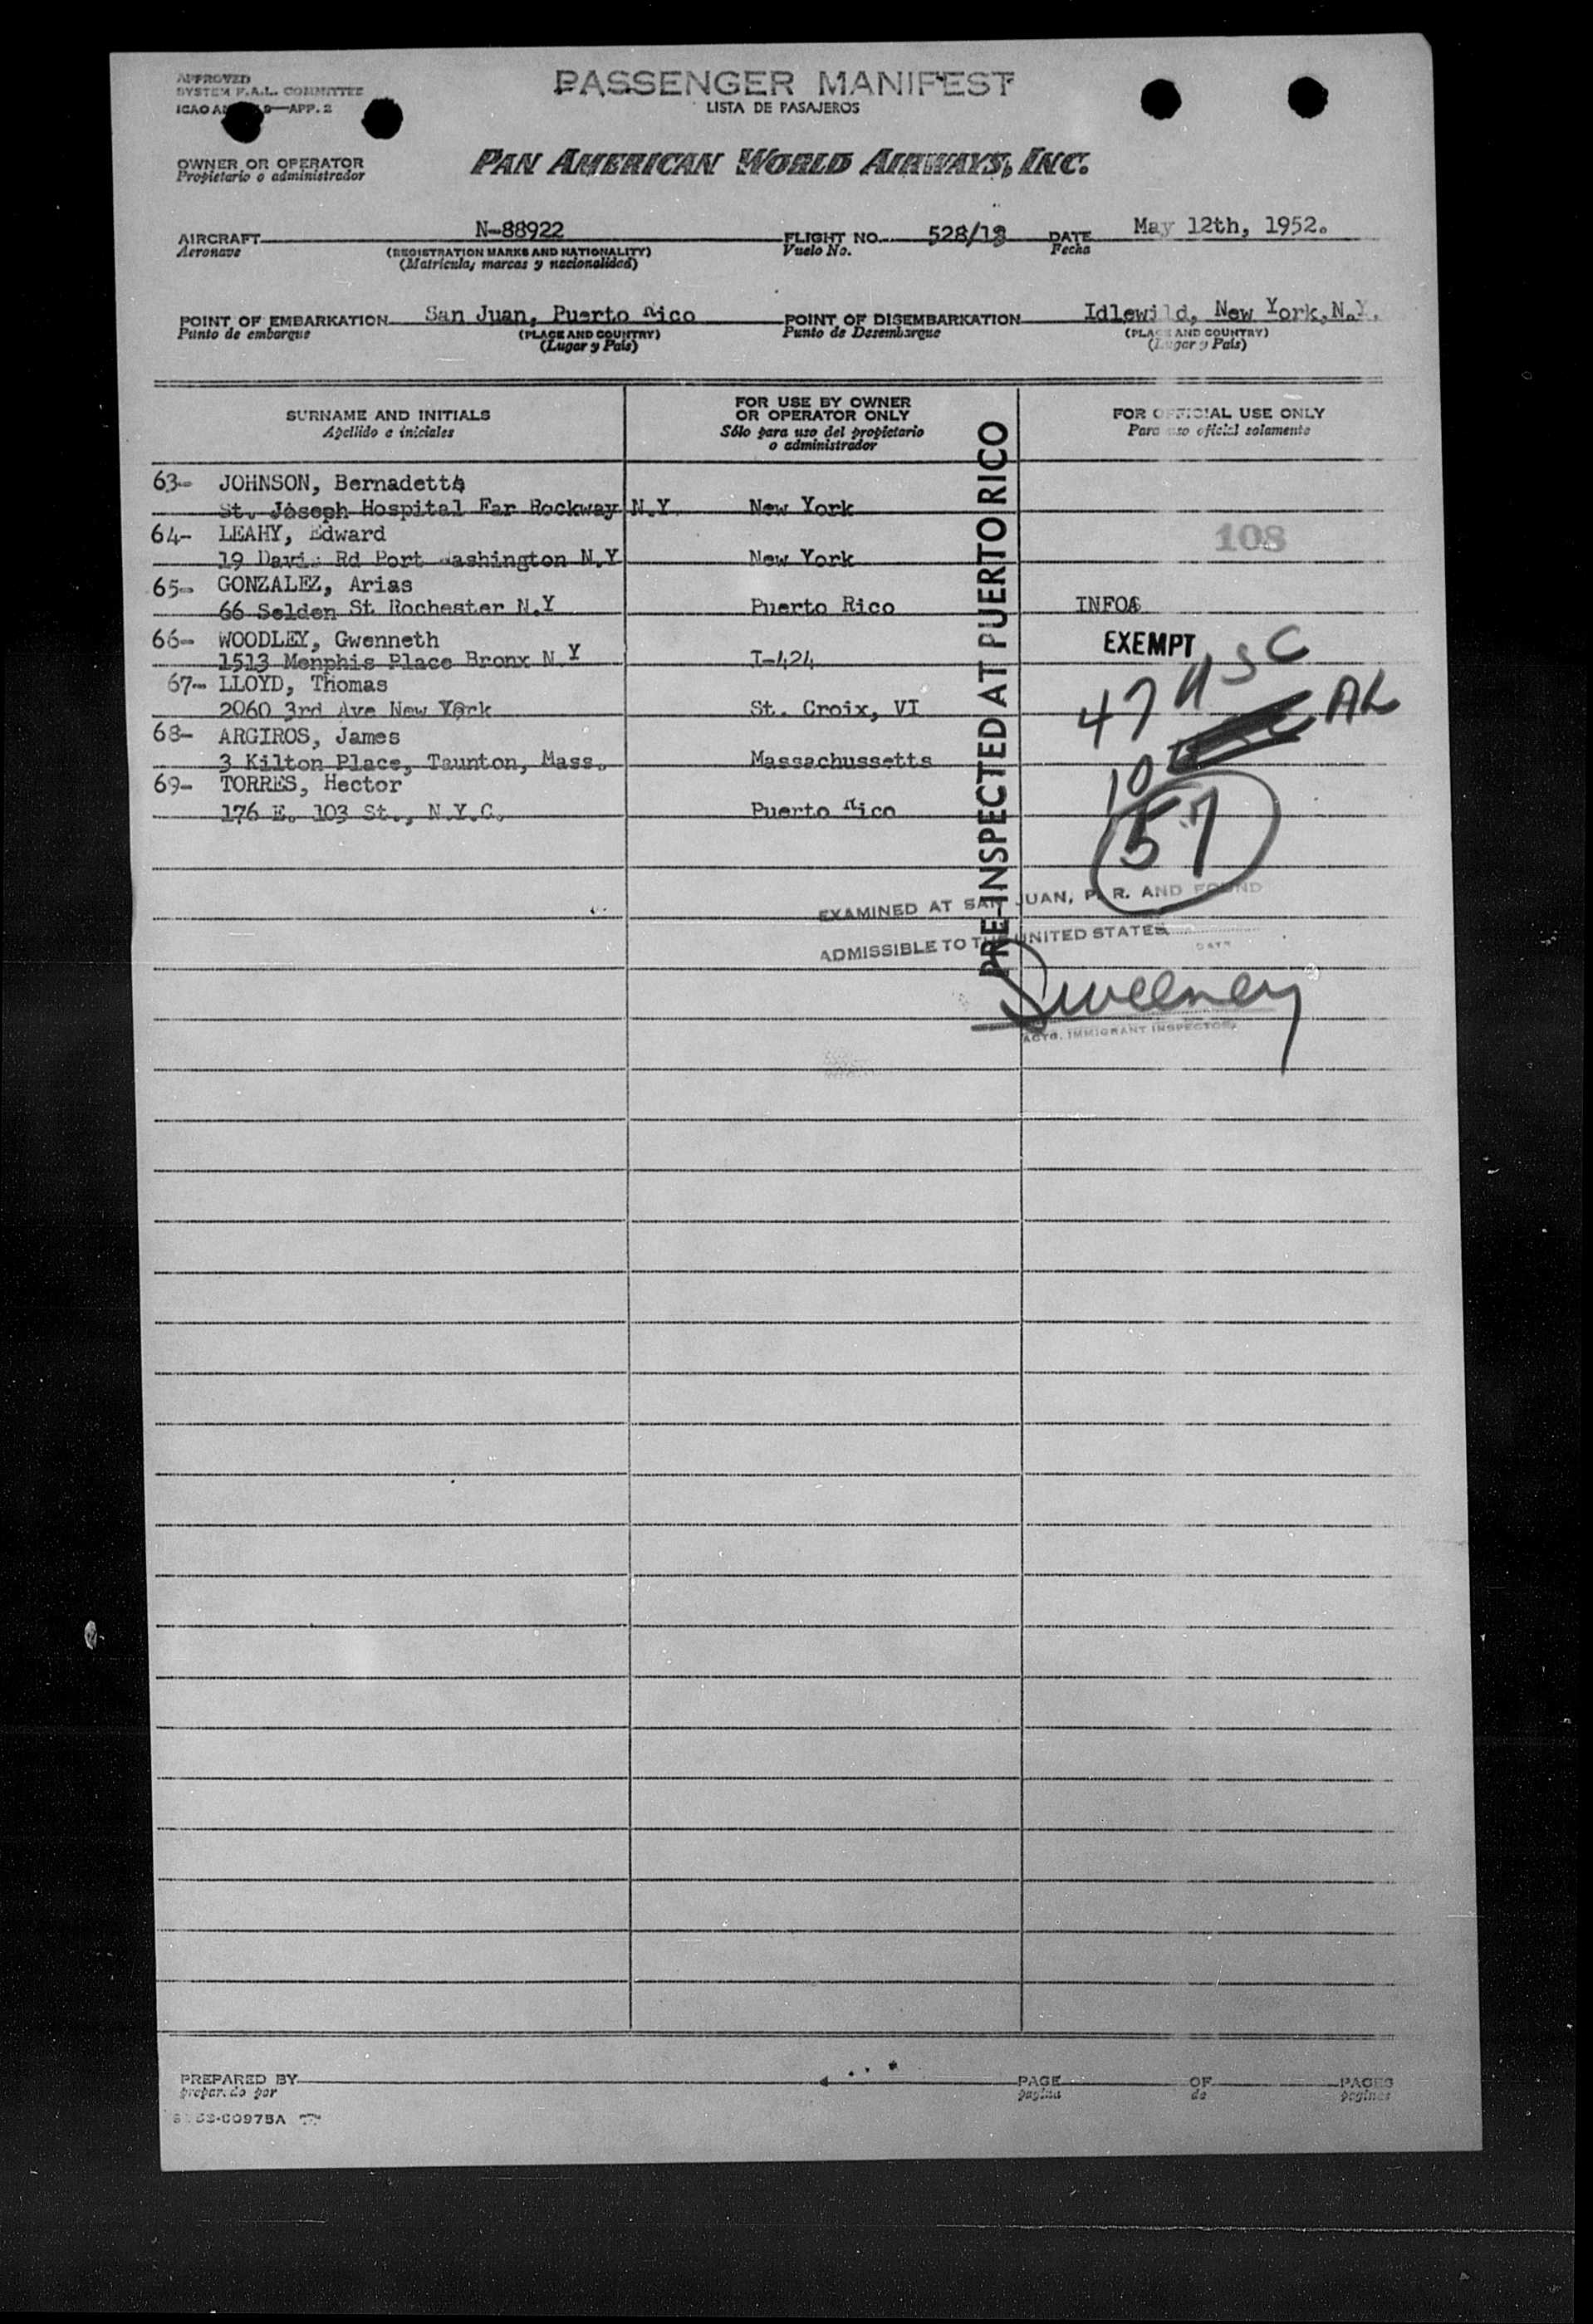 APPROVED
SYSTEM F.A.L. COMMITTEE
ICAO 9—APP. 2
PASSENGER MANIFEST
LISTA DE PASAJEROS
OWNER OR OPERATOR
Propietario o administrador
PAN AMERICAN WORLD AIRWAYS, INC.
AIRCRAFT N-88922 FLIGHT NO. 528/13 DATE May 12th, 1952.
Aeronave (REGISTRATION MARKS AND NATIONALITY) Vuelo No. Fecha
(Matricula, marcas y nacionalidad)
POINT OF EMBARKATION San Juan, Puerto Rico POINT OF DISEMBARKATION Idlewild, New York, N.Y.
Punto de embarque (PLACE AND COUNTRY) Punto de Desembarque (PLACE AND COUNTRY)
(Lugar y País) (Lugar y País)
SURNAME AND INITIALS
Apellido e iniciales
FOR USE BY OWNER
OR OPERATOR ONLY
Sólo para uso del propietario
o administrador
FOR OFFICIAL USE ONLY
Para uso oficial solamente
63- JOHNSON, Bernadette
St. Joseph Hospital Far Rockway N.Y New York
64- LEAHY, Edward 108
19 Davis Rd Port Washington N.Y New York
65- GONZALEZ, Arias
66 Selden St Rochester N.Y Puerto Rico INFO
66- WOODLEY, Gwenneth EXEMPT
1513 Menphis Place Bronx N Y I-424
67- LLOYD, Thomas
2060 3rd Ave New York St. Croix, VI
47 USC
68- ARGIROS, James
3 Kilton Place, Taunton, Mass. Massachussetts
10 AL
69- TORRES, Hector
176 E. 103 St., N.Y.C. Puerto Rico
57
PRE-INSPECTED AT PUERTO RICO
EXAMINED AT SAN JUAN, P. R. AND FOUND
ADMISSIBLE TO THE UNITED STATES
DATE
Sweeney
ACTG. IMMIGRANT INSPECTOR
PREPARED BY PAGE OF PAGES
preparado por pagina de paginas